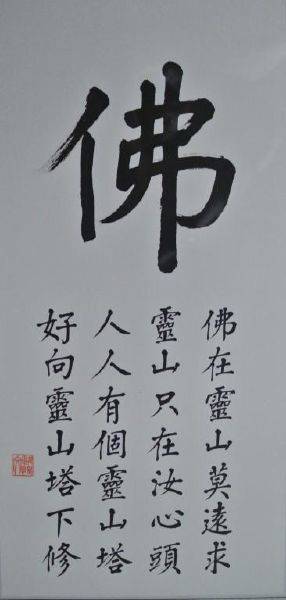 佛
佛在靈山莫遠求
靈山只在汝心頭
人人有個靈山塔
好向靈山塔下修